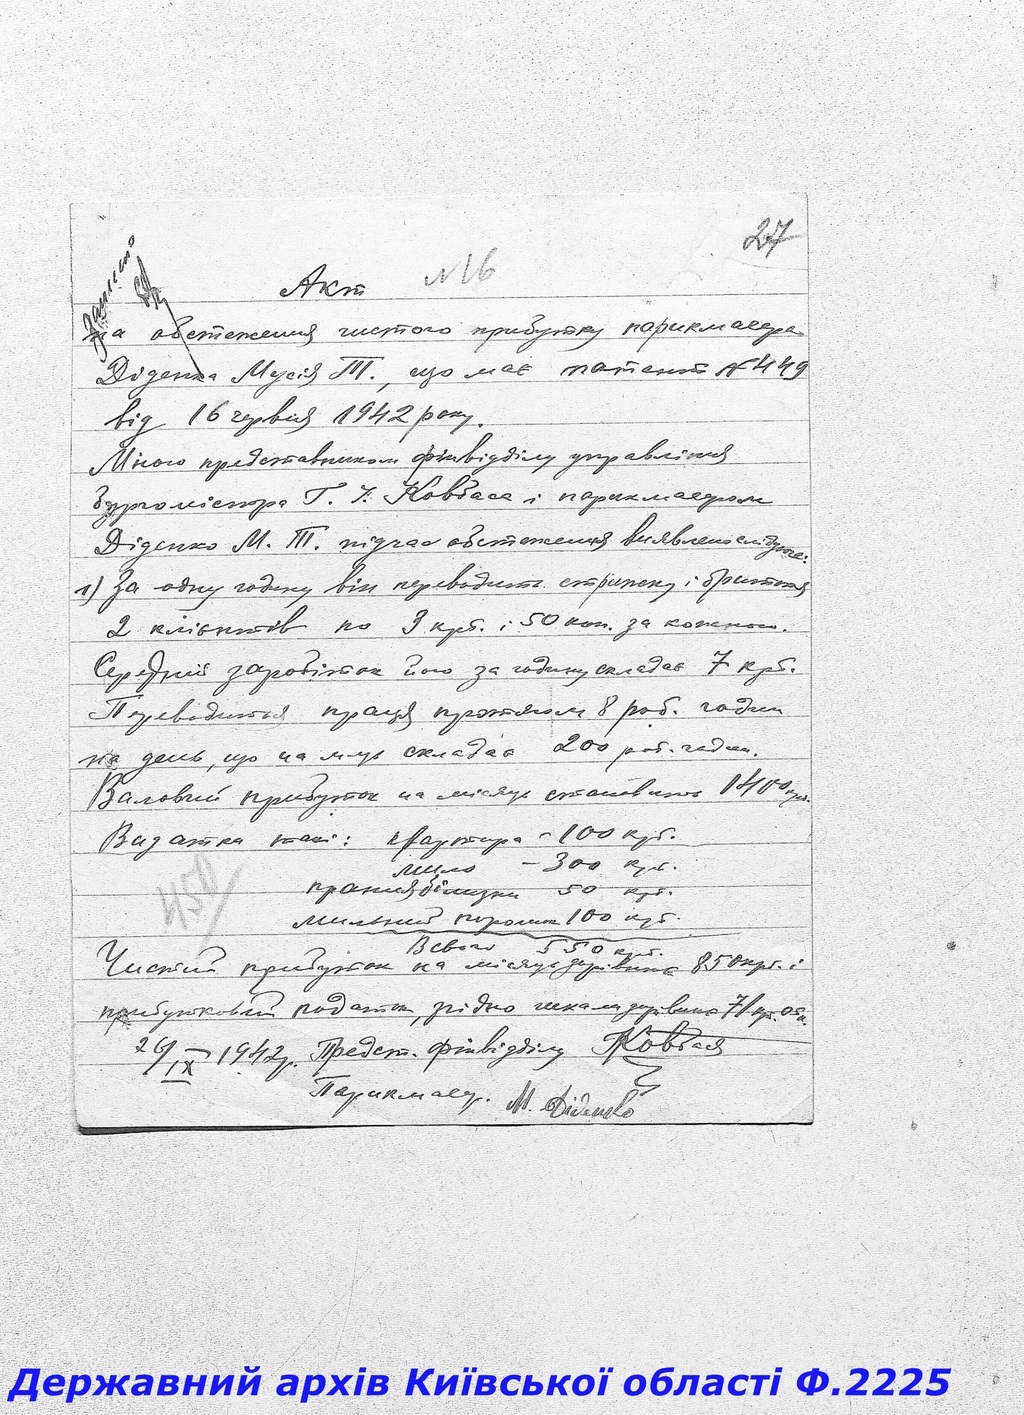 27
Акт №16
на обстеження чистого прибутку парикмахера
Діденка Мусія Т., що має патент №449
від 16 червня 1942 року.
Мною представником фінвідділу управління
бургомістра Г. І. Ковбаса і парикмахером
Діденко М. Т. підчас обстеження виявлено слідуюче:
1) За одну годину він переводить стрижку і бриття
2 клієнтів по 3 крб. і 50 коп. за кожного.
Середній заробіток його за годину складає 7 крб.
Переводиться праця протягом 8 роб. годин
на день, що на м-ць складає 200 роб. годин.
Валовий прибуток на місяць становить 1400 крб.
Видатки такі: квартира - 100 крб.
мило - 300 крб.
прання білизни 50 крб.
мильний порошок 100 крб.
450
Всього 550 крб.
Чистий прибуток на місяць дорівнює 850 крб. і
прибутковий податок, згідно шкали дорівнює 71 кр. 05 к.
1942 р. Предст. фінвідділу Ковбаса
Парикмахер. М. Діденко
Державний архів Київської області Ф.2225